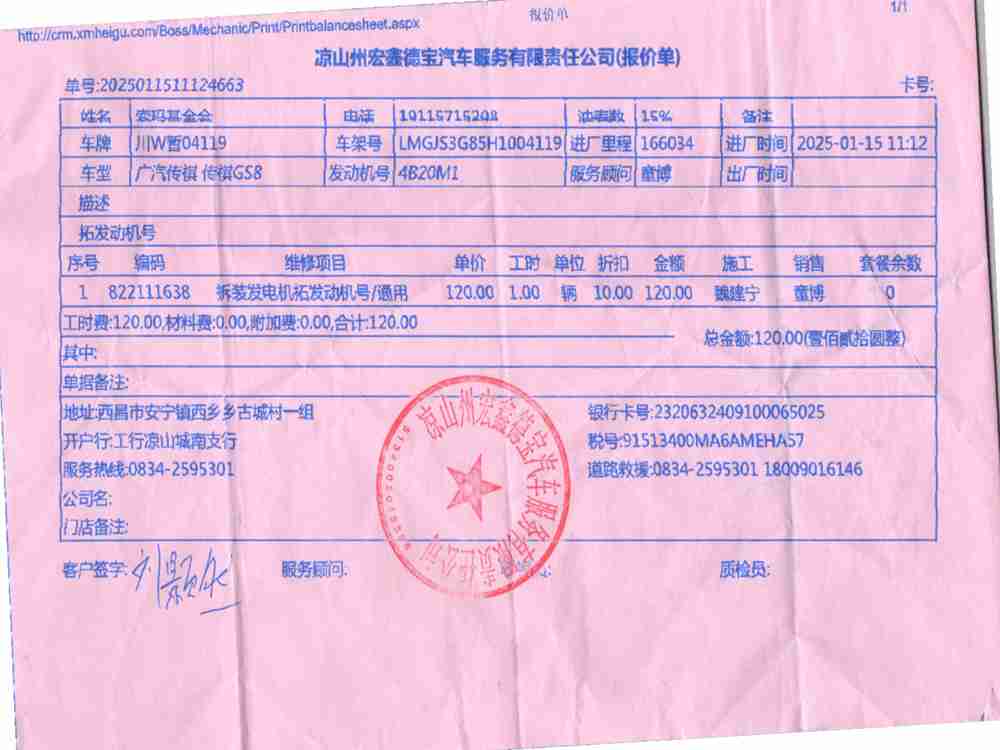 http://crm.xmheigu.com/Boss/Mechanic/Print/Printbalancesheet.aspx 报价单 1/1
凉山州宏鑫德宝汽车服务有限责任公司(报价单)
单号:2025011511124663 卡号:
姓名 索玛基金会 电话 19115715298 油表数 15% 备注
车牌 川W暂04119 车架号 LMGJS3G85H1004119 进厂里程 166034 进厂时间 2025-01-15 11:12
车型 广汽传祺 传祺GS8 发动机号 4B20M1 服务顾问 童博 出厂时间
描述
拓发动机号
序号 编码 维修项目 单价 工时 单位 折扣 金额 施工 销售 套餐余数
1 822111638 拆装发电机拓发动机号/通用 120.00 1.00 辆 10.00 120.00 魏建宁 童博 0
工时费:120.00,材料费:0.00,附加费:0.00,合计:120.00
总金额:120.00(壹佰贰拾圆整)
其中:
单据备注:
地址:西昌市安宁镇西乡乡古城村一组 银行卡号:2320632409100065025
开户行:工行凉山城南支行 税号:91513400MA6AMEHA57
服务热线:0834-2595301 道路救援:0834-2595301 18009016146
公司名:
门店备注:
凉山州宏鑫德宝汽车服务有限责任公司
客户签字: 服务顾问: 质检员: